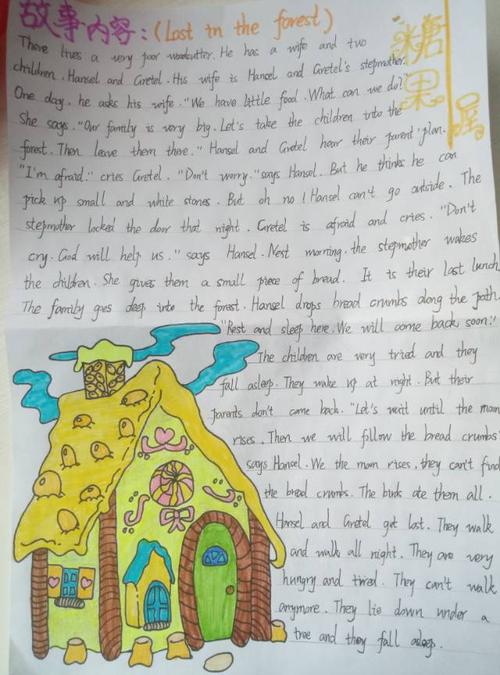 故事内容:(Lost in the forest)
糖果屋
There lives a very poor woodcutter. He has a wife and two
children. Hansel and Gretel. His wife is Hancel and Gretel's stepmother.
One day, he asks his wife. "We have little food. What can we do?"
She says. "Our family is very big. Let's take the children into the
forest. Then leave them there." Hansel and Gretel hear their parent' plan.
"I'm afraid." cries Gretel. "Don't worry." says Hansel. But he thinks he can
pick up small and white stones. But oh no! Hansel can't go outside. The
stepmother locked the door that night. Gretel is afraid and cries. "Don't
cry. God will help us." says Hansel. Nest morning, the stepmother wakes
the children. She gives them a small piece of bread. It is their last lunch.
The family goes deep into the forest. Hansel drops bread crumbs along the path.
"Rest and sleep here. We will come back soon!"
The children are very tried and they
fall asleep. They wake up at night. But their
parents don't come back. "Let's wait until the moon
rises. Then we will fillow the bread crumbs"
says Hansel. We the moon rises, they can't find
the bread crumbs. The birds ate them all.
Hansel and Gretel get lost. They walk
and walk all night. They are very
hungry and tired. They can't walk
anymore. They lie down under a
tree and they fall asleep.